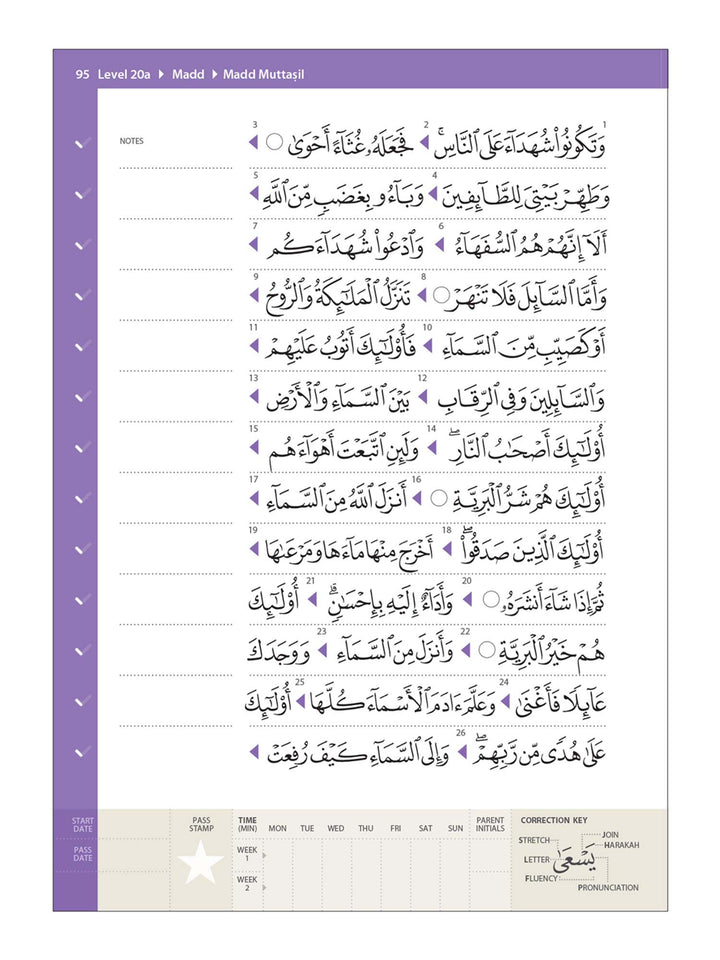 95 Level 20a ▶ Madd ▶ Madd Muttaṣil
NOTES
1 وَتَكُونُوا۟ شُهَدَآءَ عَلَى ٱلنَّاسِ ۚ 2 ◀ فَجَعَلَهُۥ غُثَآءً أَحْوَىٰ ○ 3 ◀
وَطَهِّرْ بَيْتِىَ لِلطَّآئِفِينَ 4 ◀ وَبَآءُو بِغَضَبٍ مِّنَ ٱللَّهِ 5 ◀
أَلَآ إِنَّهُمْ هُمُ ٱلسُّفَهَآءُ 6 ◀ وَٱدْعُوا۟ شُهَدَآءَكُم 7 ◀
وَأَمَّا ٱلسَّآئِلَ فَلَا تَنْهَرْ ○ 8 ◀ تَنَزَّلُ ٱلْمَلَـٰٓئِكَةُ وَٱلرُّوحُ 9 ◀
أَوْ كَصَيِّبٍ مِّنَ ٱلسَّمَآءِ 10 ◀ فَأُو۟لَـٰٓئِكَ أَتُوبُ عَلَيْهِمْ 11 ◀
وَٱلسَّآئِلِينَ وَفِى ٱلرِّقَابِ 12 ◀ بَيْنَ ٱلسَّمَآءِ وَٱلْأَرْضِ 13 ◀
أُو۟لَـٰٓئِكَ أَصْحَـٰبُ ٱلنَّارِ ۖ 14 ◀ وَلَئِنِ ٱتَّبَعْتَ أَهْوَآءَهُم 15 ◀
أُو۟لَـٰٓئِكَ هُمْ شَرُّ ٱلْبَرِيَّةِ ○ 16 ◀ أَنزَلَ ٱللَّهُ مِنَ ٱلسَّمَآءِ 17 ◀
أُو۟لَـٰٓئِكَ ٱلَّذِينَ صَدَقُوا۟ ۖ 18 ◀ أَخْرَجَ مِنْهَا مَآءَهَا وَمَرْعَىٰهَا 19 ◀
ثُمَّ إِذَا شَآءَ أَنشَرَهُۥ ○ 20 ◀ وَأَدَآءٌ إِلَيْهِ بِإِحْسَـٰنٍ ۗ 21 ◀ أُو۟لَـٰٓئِكَ
هُمْ خَيْرُ ٱلْبَرِيَّةِ ○ 22 ◀ وَأَنزَلَ مِنَ ٱلسَّمَآءِ 23 ◀ وَوَجَدَكَ
عَآئِلًا فَأَغْنَىٰ 24 ◀ وَعَلَّمَ ءَادَمَ ٱلْأَسْمَآءَ كُلَّهَا 25 ◀ أُو۟لَـٰٓئِكَ
عَلَىٰ هُدًى مِّن رَّبِّهِمْ ۖ 26 ◀ وَإِلَى ٱلسَّمَآءِ كَيْفَ رُفِعَتْ ◀
START DATE
PASS DATE
PASS STAMP
TIME (MIN) MON TUE WED THU FRI SAT SUN PARENT INITIALS
WEEK 1
WEEK 2
CORRECTION KEY
STRETCH
JOIN
HARAKAH
LETTER
يَسْعَىٰ
FLUENCY
PRONUNCIATION